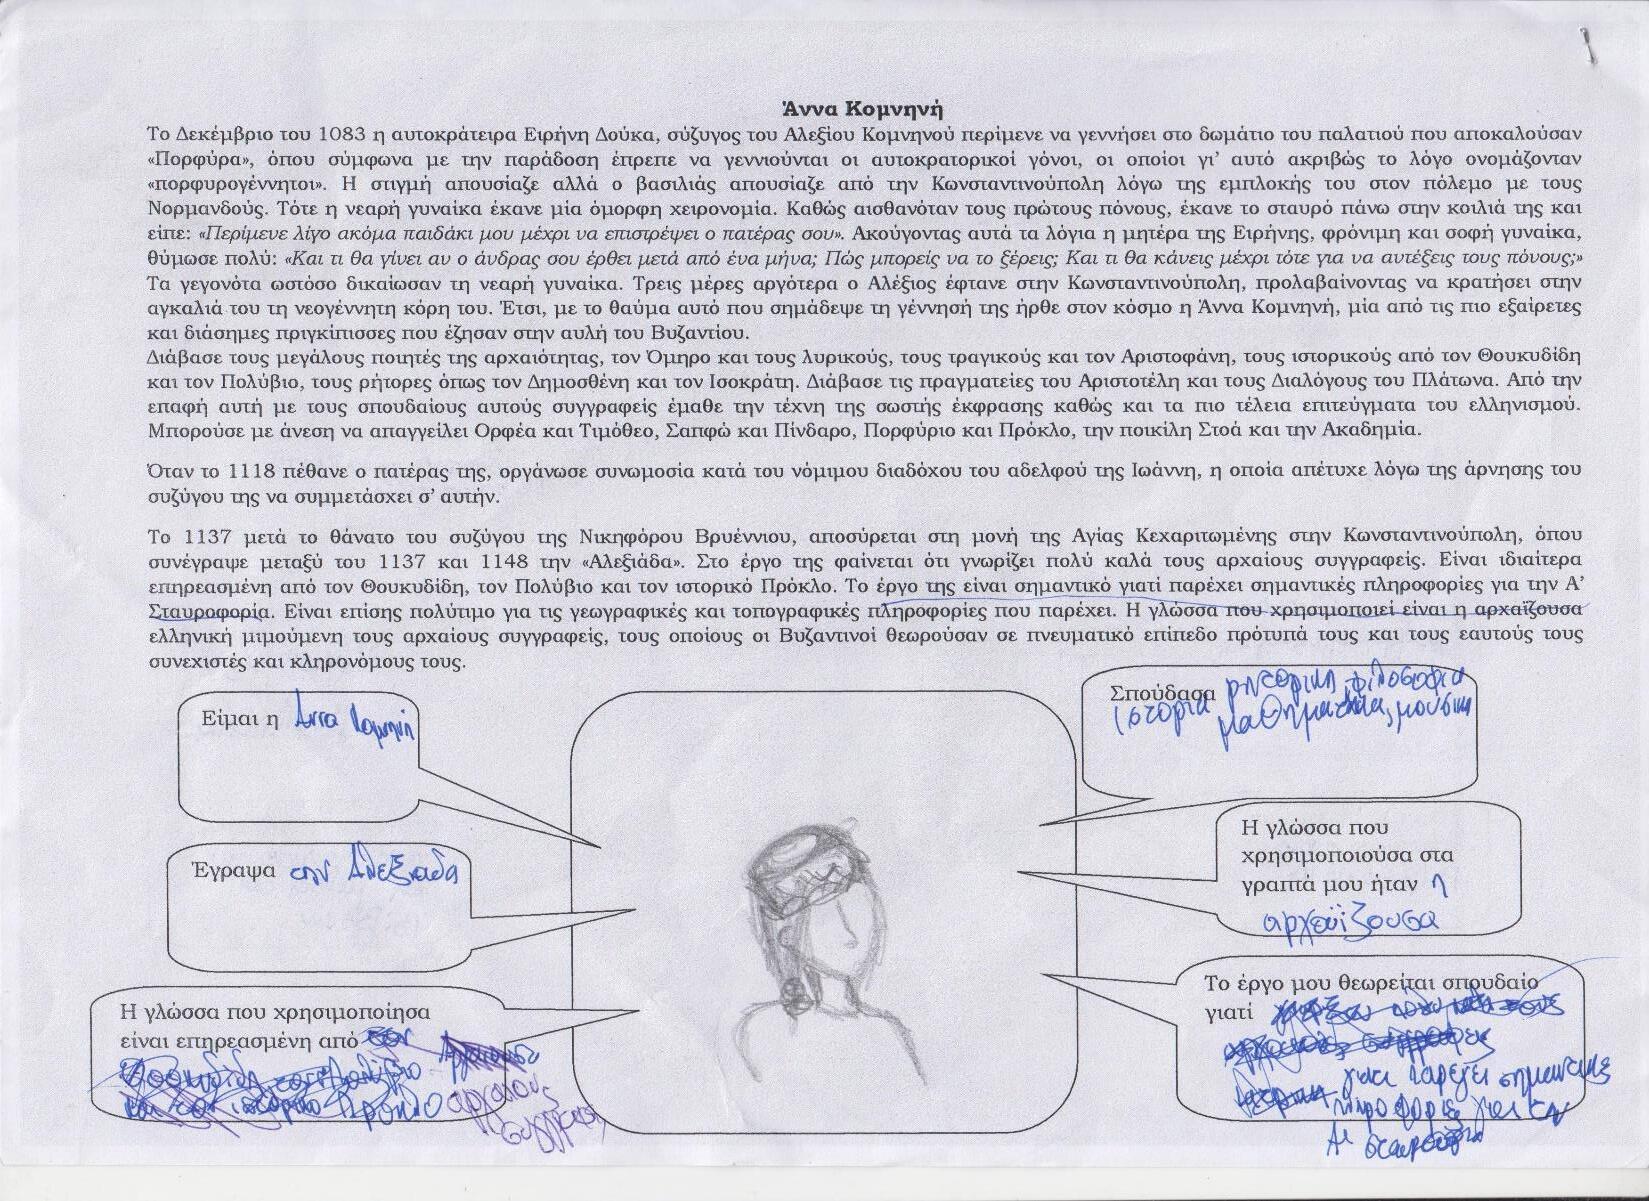 Άννα Κομνηνή
Το Δεκέμβριο του 1083 η αυτοκράτειρα Ειρήνη Δούκα, σύζυγος του Αλεξίου Κομνηνού περίμενε να γεννήσει στο δωμάτιο του παλατιού που αποκαλούσαν
«Πορφύρα», όπου σύμφωνα με την παράδοση έπρεπε να γεννιούνται οι αυτοκρατορικοί γόνοι, οι οποίοι γι' αυτό ακριβώς το λόγο ονομάζονταν
«πορφυρογέννητοι». Η στιγμή απουσίαζε αλλά ο βασιλιάς απουσίαζε από την Κωνσταντινούπολη λόγω της εμπλοκής του στον πόλεμο με τους
Νορμανδούς. Τότε η νεαρή γυναίκα έκανε μία όμορφη χειρονομία. Καθώς αισθανόταν τους πρώτους πόνους, έκανε το σταυρό πάνω στην κοιλιά της και
είπε: «Περίμενε λίγο ακόμα παιδάκι μου μέχρι να επιστρέψει ο πατέρας σου». Ακούγοντας αυτά τα λόγια η μητέρα της Ειρήνης, φρόνιμη και σοφή γυναίκα,
θύμωσε πολύ: «Και τι θα γίνει αν ο άνδρας σου έρθει μετά από ένα μήνα; Πώς μπορείς να το ξέρεις; Και τι θα κάνεις μέχρι τότε για να αντέξεις τους πόνους;»
Τα γεγονότα ωστόσο δικαίωσαν τη νεαρή γυναίκα. Τρεις μέρες αργότερα ο Αλέξιος έφτανε στην Κωνσταντινούπολη, προλαβαίνοντας να κρατήσει στην
αγκαλιά του τη νεογέννητη κόρη του. Έτσι, με το θαύμα αυτό που σημάδεψε τη γέννησή της ήρθε στον κόσμο η Άννα Κομνηνή, μία από τις πιο εξαίρετες
και διάσημες πριγκίπισσες που έζησαν στην αυλή του Βυζαντίου.
Διάβασε τους μεγάλους ποιητές της αρχαιότητας, τον Όμηρο και τους λυρικούς, τους τραγικούς και τον Αριστοφάνη, τους ιστορικούς από τον Θουκυδίδη
και τον Πολύβιο, τους ρήτορες όπως τον Δημοσθένη και τον Ισοκράτη. Διάβασε τις πραγματείες του Αριστοτέλη και τους Διαλόγους του Πλάτωνα. Από την
επαφή αυτή με τους σπουδαίους αυτούς συγγραφείς έμαθε την τέχνη της σωστής έκφρασης καθώς και τα πιο τέλεια επιτεύγματα του ελληνισμού.
Μπορούσε με άνεση να απαγγείλει Ορφέα και Τιμόθεο, Σαπφώ και Πίνδαρο, Πορφύριο και Πρόκλο, την ποικίλη Στοά και την Ακαδημία.
Όταν το 1118 πέθανε ο πατέρας της, οργάνωσε συνωμοσία κατά του νόμιμου διαδόχου του αδελφού της Ιωάννη, η οποία απέτυχε λόγω της άρνησης του
συζύγου της να συμμετάσχει σ' αυτήν.
Το 1137 μετά το θάνατο του συζύγου της Νικηφόρου Βρυέννιου, αποσύρεται στη μονή της Αγίας Κεχαριτωμένης στην Κωνσταντινούπολη, όπου
συνέγραψε μεταξύ του 1137 και 1148 την «Αλεξιάδα». Στο έργο της φαίνεται ότι γνωρίζει πολύ καλά τους αρχαίους συγγραφείς. Είναι ιδιαίτερα
επηρεασμένη από τον Θουκυδίδη, τον Πολύβιο και τον ιστορικό Πρόκλο. Το έργο της είναι σημαντικό γιατί παρέχει σημαντικές πληροφορίες για την Α'
Σταυροφορία. Είναι επίσης πολύτιμο για τις γεωγραφικές και τοπογραφικές πληροφορίες που παρέχει. Η γλώσσα που χρησιμοποιεί είναι η αρχαΐζουσα
ελληνική μιμούμενη τους αρχαίους συγγραφείς, τους οποίους οι Βυζαντινοί θεωρούσαν σε πνευματικό επίπεδο πρότυπά τους και τους εαυτούς τους
συνεχιστές και κληρονόμους τους.
Είμαι η Άννα Κομνηνή
Σπούδασα ρητορικη, φιλοσοφια
ιστορια μαθηματικα, μουσικη
Έγραψα την Αλεξιαδα
Η γλώσσα που
χρησιμοποιούσα στα
γραπτά μου ήταν η
αρχεϊζουσα
Η γλώσσα που χρησιμοποίησα
είναι επηρεασμένη από τον
Θουκυδίδη τον Πολύβιο
και τον ιστορικο Προκλο
αρχαιους
συγγραφει
Το έργο μου θεωρείται σπουδαίο
γιατί
γιατι παρεχει σημαντικες
πληροφοριες για την
Α σταυροφορια